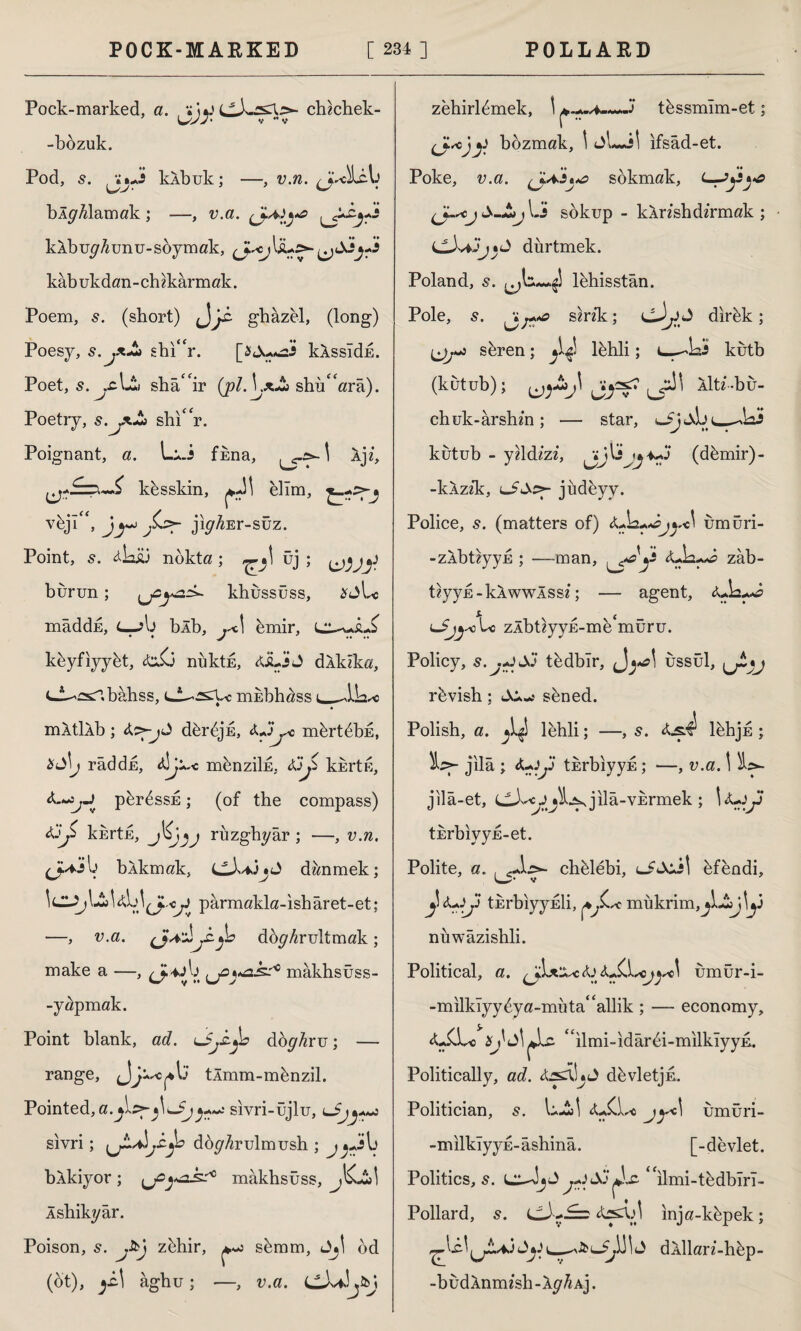 POCK-MARKED [ 234 ] POLLARD
Pock-marked, a. چیچک بوزوق chichek-
-bòzuk.
Pod, s. قبوق kÀbuk; —, v.n. باغلامق
bÀghlamak; —, v.a. قبوغنی صویمق
kÀbughunu-sòymak, قبوقدن چیقارمق
kàbukdan-chikàrmak.
Poem, s. (short) غزل ghàzèl, (long)
Poesy, s. شعر shì“r. [قصیده kÀssīdE.
Poet, s. شاعر shā“ir (pl. شعرا shù“arā).
Poetry, s. شعر shì“r.
Poignant, a. فنا fEna, آجی Àji,
کسکین kèsskin, الیم èlīm,
وجیع vèjī“, جگرسوز jighEr-sūz.
Point, s. نقطه nòkta; اوج ūj; بورون
bùrun; خصوص khùssūss, ماده
māddE, باب bÀb, امر èmir, کیفیت
kèyfiyyèt, نکته nùktE, دقیقه dÀkīka,
بحث bàhss, مبحث mEbhàss مطلب
mÀtlÀb; درجه dèréjE, مرتبه mèrtébE,
راده rāddE, منزله mènzilE, کرته kErtE,
پرسه pèréssE; (of the compass)
کرته kErtE, روزگار rùzghyār; —, v.n.
باقمق bÀkmak, دونمك dùnmek;
پرمقله اشارت ایت pàrmakla-ishāret-et;
—, v.a. طوغرولتمق dòghrultmak;
make a —, مخصوص یاپمق màkhsūss-
-yàpmak.
Point blank, ad. طوغری dòghru; —
range, تام منزل tÀmm-mènzil.
Pointed, a. سیوری اوجلو sìvri-ūjlu, سیوری
sìvri; طوغرولمش dòghrulmush; باقیور
bÀkiyor; مخصوص màkhsūss, آشکار
Àshikyār.
Poison, s. زهر zèhir, سم sèmm, اود òd
(òt), اغو àghu; —, v.a. زهرلمك
zèhirlémek, تسمیم ا tèssmīm-et;
بوزمق bòzmak, افساد ا ìfsād-et.
Poke, v.a. صوقمق sòkmak, صوقوب
قارشدیرمق sòkup - kÀrishdirmak;
دورتمك dùrtmek.
Poland, s. لهستان lèhisstān.
Pole, s. صیریق sìrik; دیرك dìrèk;
سرن sèren; لهلی lèhli; قطب kùtb
(kùtub); آلتی بوچوق آرشون Àlti-bù-
chuk-àrshin; — star, قطب یلدیزی
kùtub - yìldizi, تیمور قازیق (dèmir)-
-kÀzik, جدی jùdèyy.
Police, s. (matters of) امور ضبطیه ùmūri-
-zÀbtìyyE; —man, ضبطیه قواصی zàb-
tìyyE-kÀwwÀssi; — agent, ضبطیه
مأموری zÀbtìyyE-mè‘mūru.
Policy, s. تدبیر tèdbīr, اصول ùssūl, روش
rèvish; سند sèned.
Polish, a. لهلی lèhli; —, s. لهجه lèhjE;
جلا jìlā; تربیه tErbìyyE; —, v.a. جلا ا
jìlā-et, جلا ویرمك jìlā-vErmek; تربیه ا
tErbìyyE-et.
Polite, a. چلبی chèlébi, افندی èféndi,
تربیه لی tErbìyyEli, مکرم mùkrim, نوازشلی
nùwāzishli.
Political, a. امور ملکیه یه متعلق ùmūr-i-
-mìlkīyyéya-mùta“allik; — economy,
علم ادارهٔ ملکیه “ìlmi-ìdāréi-mìlkīyyE.
Politically, ad. دولتجه dèvletjE.
Politician, s. امور ملکیه آشنا ùmūri-
-mìlkīyyE-āshinā. [-dèvlet.
Politics, s. علم تدبیر دولت “ìlmi-tèdbīrī-
Pollard, s. اینجه کپك ìnja-kèpek;
داللری هپ بودانمش آغاج dÀllari-hèp-
-bùdÀnmish-ÀghÀj.